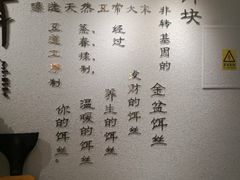 块
非转基因的
臻选天然五常大米
经过
蒸、舂、揉制,
金盆饵丝
发财的饵丝
养生的饵丝
温暖的饵丝
你的饵丝。